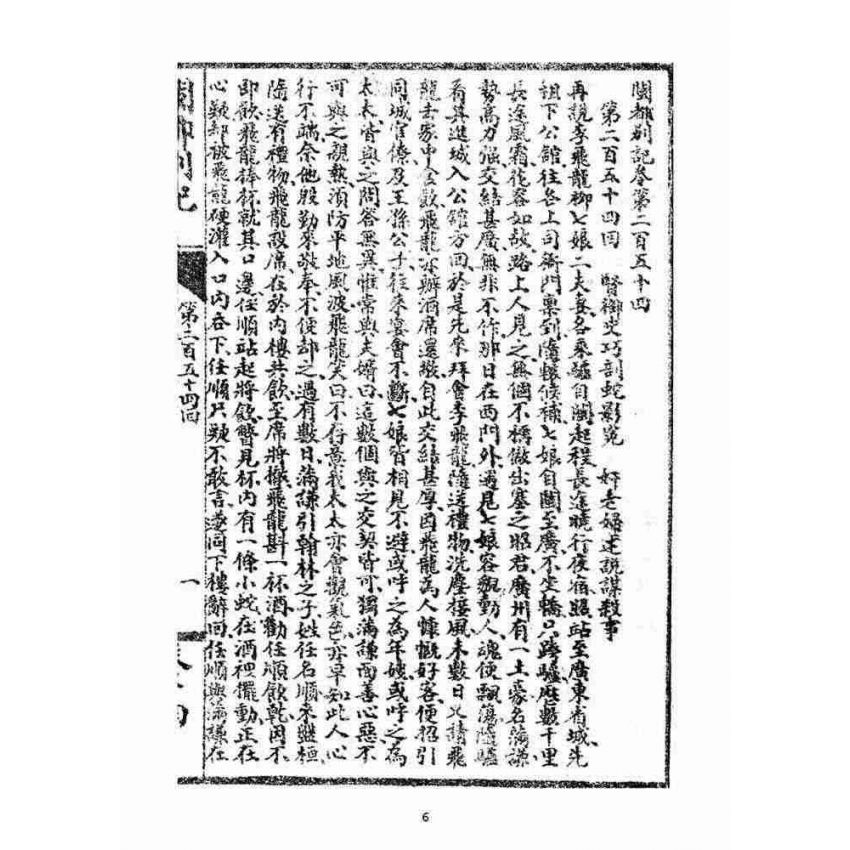 閩都別記卷第二百五十四
第二百五十四回 賢御史巧剖蛇影冤 奸老婦述說謀殺事
再說李飛龍柳七娘二夫妻各乘驢自閩起程長途曉行夜宿照站至廣東省城先
詛下公館往各上司衙門稟到隨轅候補七娘自閩至廣不坐轎只跨驢庶數千里
長途風霜花容如故路上人見之無個不稱做出塞之昭君廣州有一土豪名滿謙
勢高力強交結甚廣無非不作那日在西門外遇見七娘容貌動人魂便飄蕩隨驢
看其進城入公館方回於是先來拜會李飛龍隨送禮物洗塵接風未數日又請飛
龍去家中會飲飛龍亦辦酒席還敬自此交結甚厚因飛龍為人慷慨好客便招引
同城官僚及王孫公子往來宴會不斷七娘皆相見不避或呼之為年嫂或呼之為
太太皆與之問答無異惟常與夫婿曰這數個與之交契皆可獨滿謙面善心惡不
可與之親熱須防平地風波飛龍笑曰不存意我太太亦會觀氣色亦早知此人心
行不端奈他殷勤來敬奉不便却之過有數日滿謙引翰林之子姓任名順來盤桓
隨送有禮物飛龍設席在於內樓共飲至席將撤飛龍斟一杯酒勸任順飲乾因不
卽飲飛龍棒杯就其口邊任順站起將飲瞥見杯內有一條小蛇在酒裡擺動正在
心疑却被飛龍硬灌入口內吞下任順只疑不敢言遂同下樓辭回任順與滿謙在
閩都別記
第二百五十四回
一
6